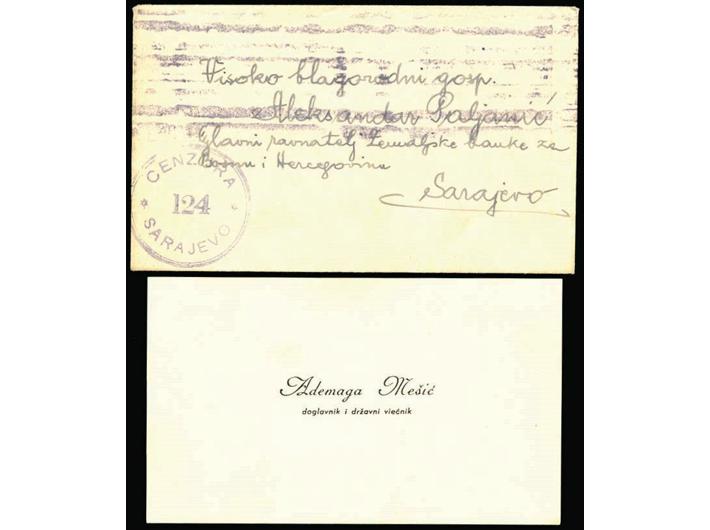 Visoko blagorodni gosp.
Aleksandar Poljanić
Glavni ravnatelj Zemaljske banke za
Bosnu i Hercegovinu
Sarajevo
CENZURA
124
* SARAJEVO *
Ademaga Mešić
doglavnik i državni viećnik